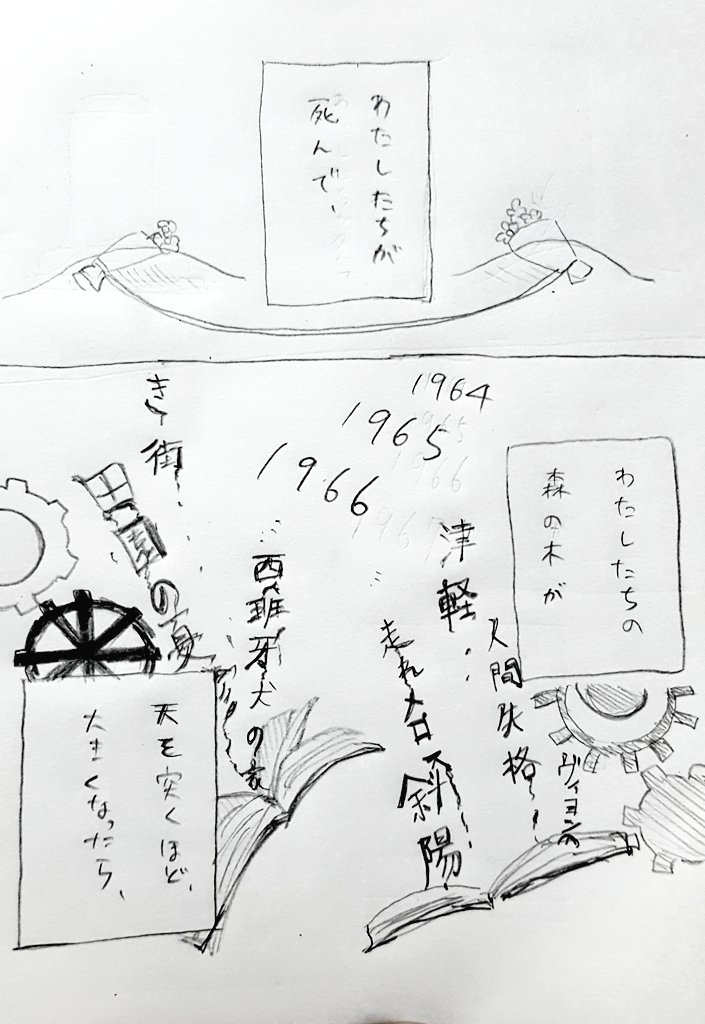 わたしたちが
死んで、
わたしたちの
森の木が
1964
1965
1966
津軽
人間失格
ヴィヨンの
走れメロス
斜陽
西班牙犬の家
田園の
街
天を突くほど、
大きくなったら、